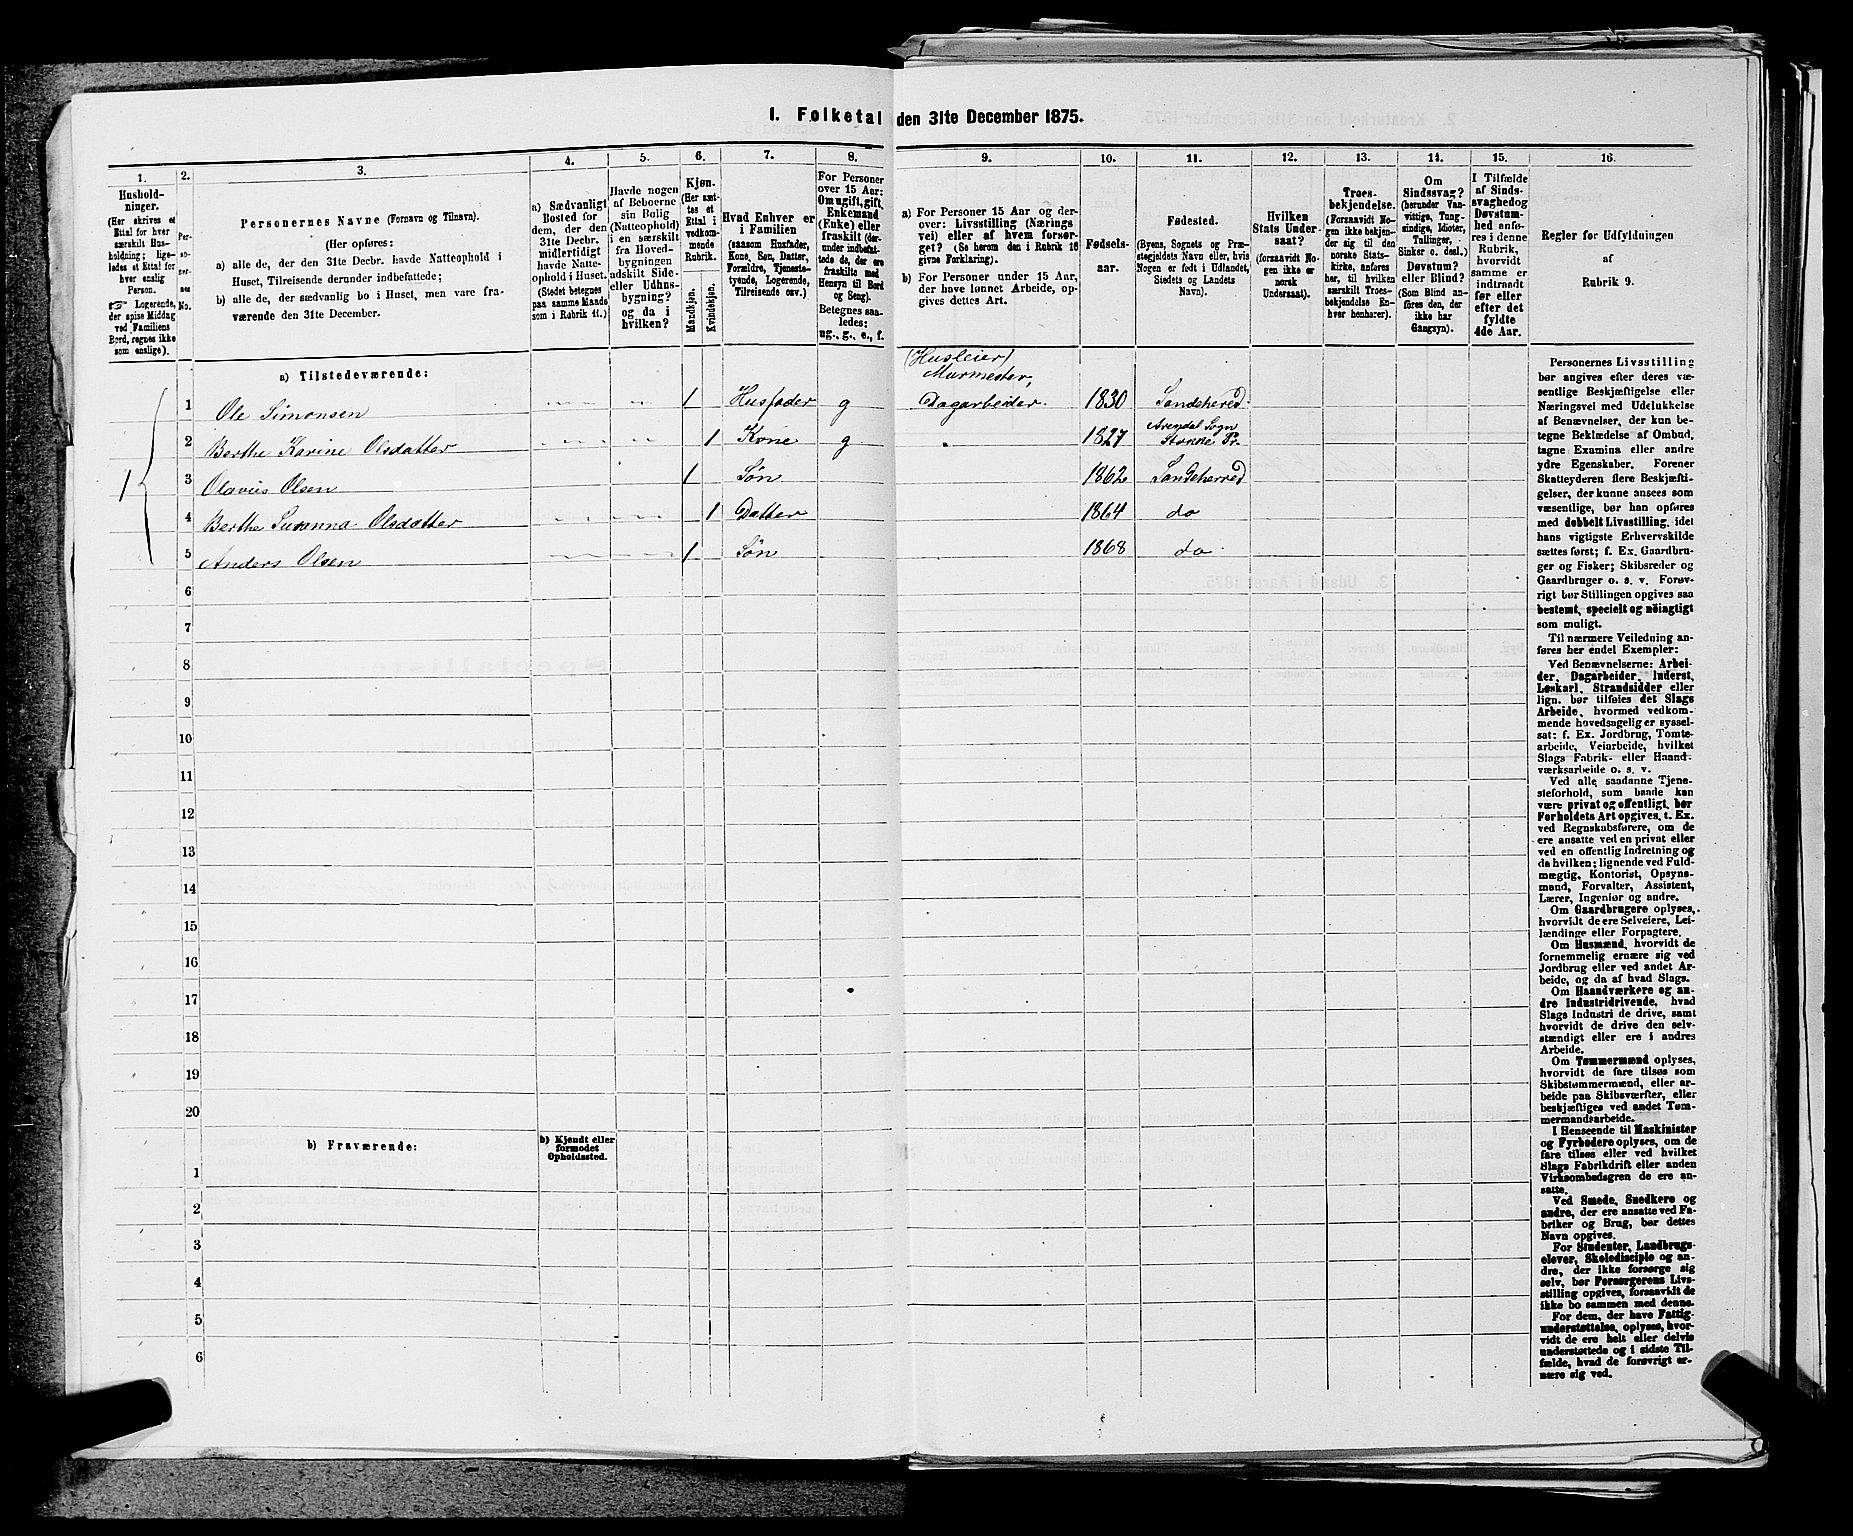 1. Folketal den 31te December 1875.
1.
Hushold-
ninger.
(Her skrives et
Ettal for hver
særskilt Hus-
holdning; lige-
ledes et Ettal for
hver enslig
Person.
☞ Logerende,
der spise Middag
ved Familiens
Bord, regnes ikke
som enslige).
2.
Per-
so-
ner-
nes
No.
3.
Personernes Navne (Fornavn og Tilnavn).
(Her opføres:
a) alle de, der den 31te Decbr. havde Natteophold i
Huset, Tilreisende derunder indbefattede;
b) alle de, der sædvanlig bo i Huset, men vare fra-
værende den 31te December.
4.
a) Sædvanligt
Bosted for
dem, der den
31te Decbr.
midlertidigt
havde Natte-
ophold i Huset.
(Stedet betegnes
paa samme Maade
som i Rubrik 11.)
5.
Havde nogen
af Beboerne
sin Bolig
(Natteophold)
i en særskilt
fra Hoved-
bygningen
adskilt Side-
eller Udhus-
bygning?
og da i
hvilken?
6.
Kjøn.
(Her sæt-
tes et
Ettal i
vedkom-
mende
Rubrik.
Mandkjøn.
Kvindekjøn.
7.
Hvad Enhver er
i Familien
(saasom Husfader,
Kone, Søn, Datter,
Forældre, Tjeneste-
tyende, Logerende,
Tilreisende osv.)
8.
For Personer
over 15 Aar:
Om ugift, gift,
Enkemand
(Enke) eller
fraskilt (der-
under indbefat-
tede de, der ere
fraskilte med
Hensyn til Bord
og Seng).
Betegnes saa-
ledes:
ug., g., e., f.
9.
a) For Personer 15 Aar og der-
over: Livsstilling (Nærings
vei) eller af hvem forsør-
get? (Se herom den i Rubrik 16
givne Forklaring).
b) For Personer under 15 Aar,
der have lønnet Arbeide, op-
gives dettes Art.
10.
Fødsels-
aar.
11.
Fødested.
(Byens, Sognets og Præ-
stegjeldets Navn eller, hvis
Nogen er født i Udlandet,
Stedets og Landets
Navn).
12.
Hvilken
Stats Under-
saat?
(forsaavidt No-
gen ikke er
norsk
Undersaat).
13.
Troes-
bekjendelse.
(Forsaavidt No-
gen ikke bekjen-
der sig til den
norske Stats-
kirke, anføres
her, til hvilken
særskilt Troes-
bekjendelse En-
hver henhører).
14.
Om
Sindssvag?
(herunder Van-
vittige, Tung-
sindige, Idioter,
Tullinger,
Sinker o. desl.)
Døvstum?
eller Blind?
(Som Blind an-
føres den, der
ikke har
Gangsyn).
15.
I Tilfælde
af Sinds-
svaghed og
Døvstum-
hed anfø-
res i denne
Rubrik,
hvorvidt
samme er
indtraadt
før eller
efter det
fyldte
4de Aar.
16.
Regler for Udfyldningen
af
Rubrik 9.
a) Tilstedeværende:
1 1 Ole Simonsen 1 Husfader g (Husleier) Murmester, Dagarbeider. 1830 Sandeherred.
2 Berthe Karine Olsdatter 1 Kone g 1827 Arendal Sogn Stokke Pr.
3 Olavus Olsen 1 Søn 1862 Sandeherred
4 Berthe Susanna Olsdatter 1 Datter 1864 do
5 Anders Olsen 1 Søn 1868 do
6
7
8
9
10
11
12
13
14
15
16
17
18
19
20
b) Fraværende:
b) Kjendt eller
formodet
Opholdssted.
1
2
3
4
5
6
Personernes Livsstilling
bør angives efter deres væ-
sentlige Beskjæftigelse eller
Næringsvei med Udelukkelse
af Benævnelser, der kun be-
tegne Beklædelse af Ombud,
tagne Examina eller andre
ydre Egenskaber. Forener
Skatteyderen flere Beskjæfti-
gelser, der kunne ansees som
væsentlige, bør han opføres
med dobbelt Livsstilling, idet
hans vigtigste Erhvervskilde
sættes først; f. Ex. Gaardbru-
ger og Fisker; Skibsreder og
Gaardbruger o. s. v. Forøv-
rigt bør Stillingen opgives saa
bestemt, specielt og nøiagtigt
som muligt.
Til nærmere Veiledning an-
føres her endel Exempler:
Ved Benævnelserne: Arbei-
der, Dagarbeider, Inderst,
Løskarl, Strandsidder eller
lign. bør tilføies det Slags
Arbeide, hvormed vedkom-
mende hovedsagelig er syssel-
sat: f. Ex. Jordbrug, Tomte-
arbeide, Veiarbeide, hvilket
Slags Fabrik- eller Haand-
værksarbeide o. s. v.
Ved alle saadanne Tjene-
steforhold, som baade kan
være privat og offentligt, bør
Forholdets Art opgives, t. Ex.
ved Regnskabsførere, om de
ere ansatte ved en privat eller
ved en offentlig Indretning og
da hvilken; lignende ved Fuld-
mægtig, Kontorist, Opsyns-
mand, Forvalter, Assistent,
Lærer, Ingeniør og andre.
Om Gaardbrugere oplyses,
hvorvidt de ere Selveiere, Lei-
lændinge eller Forpagtere.
Om Husmænd, hvorvidt de
fornemmelig ernære sig ved
Jordbrug eller ved andet Ar-
beide, og da af hvad Slags.
Om Haandværkere og an-
dre Industridrivende, hvad
Slags Industri de drive, samt
hvorvidt de drive den selv-
stændigt eller ere i andres
Arbeide.
Om Tømmermænd oplyses,
hvorvidt de fare tilsøs som
Skibstømmermænd, eller ar-
beide paa Skibsværfter, eller
beskjæftiges ved andet Tøm-
mermandsarbeide.
I Henseende til Maskinister
og Fyrbødere oplyses, om de
fare tilsøs eller ved hvilket
Slags Fabrikdrift eller anden
Virksomhedsgren de ere an-
satte.
Ved Smede, Snedkere og
andre, der ere ansatte ved Fa-
briker og Brug, bør dettes
Navn opgives.
For Studenter, Landbrugs-
elever, Skoledisciple og an-
dre, der ikke forsørge sig
selv, bør Forsørgerens Livs-
stilling opgives, forsaavidt de
ikke bo sammen med denne.
For dem, der have Fattig-
understøttelse, oplyses, hvor-
vidt de ere helt eller delvis
understøttede og i sidste Til-
fælde, hvad de forøvrigt er-
nære sig ved.